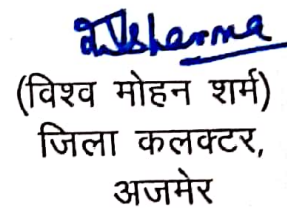 (विश्व मोहन शर्म)
जिला कलक्टर,
अजमेर